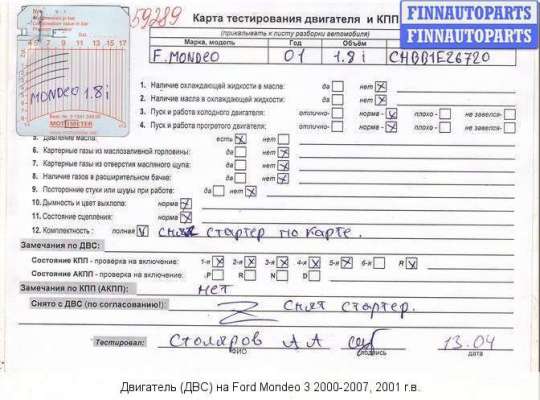 59289
Карта тестирования двигателя и КПП
(прикалывать к листу разборки автомобиля)
FINNAUTOPARTS
FINNAUTOPARTS
Марка, модель Год Объём
F. MONDEO 01 1.8 i CHBB1E26720
MONDEO 1.8 i
MOTOMETER
1. Наличие охлаждающей жидкости в масле: да нет
2. Наличие масла в охлаждающей жидкости: да нет
3. Пуск и работа холодного двигателя: отлично- норма - плохо - не завелся-
4. Пуск и работа прогретого двигателя: отлично- норма - плохо - не завелся-
5. Давление масла: есть нет
6. Картерные газы из маслозаливной горловины: да нет
7. Картерные газы из отверстия масляного щупа: да нет
8. Наличие газов в расширительном бачке: да нет
9. Посторонние стуки или шумы при работе: да нет
10. Дымность и цвет выхлопа: норма
11. Состояние сцепления: норма
12. Комплектность : полная V снят стартер по карте.
Замечания по ДВС:
Состояние КПП - проверка на включение: 1-я 2-я 3-я 4-я 5-я 6-я R
Состояние АКПП - проверка на включение: P R N D
Замечания по КПП (АКПП): нет
Снято с ДВС (по согласованию!): снят стартер.
Тестировал: Столяров А А 13.04
ФИО подпись дата
Двигатель (ДВС) на Ford Mondeo 3 2000-2007, 2001 г.в.